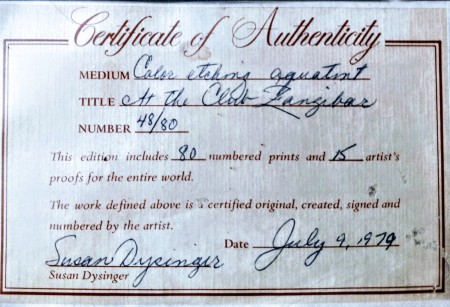 Certificate of Authenticity
MEDIUM Color etching aquatint
TITLE At the Club Zanzibar
NUMBER 48/80
This edition includes 80 numbered prints and 15 artist's
proofs for the entire world.
The work defined above is a certified original, created, signed and
numbered by the artist.
Date July 9, 1979
Susan Dysinger
Susan Dysinger